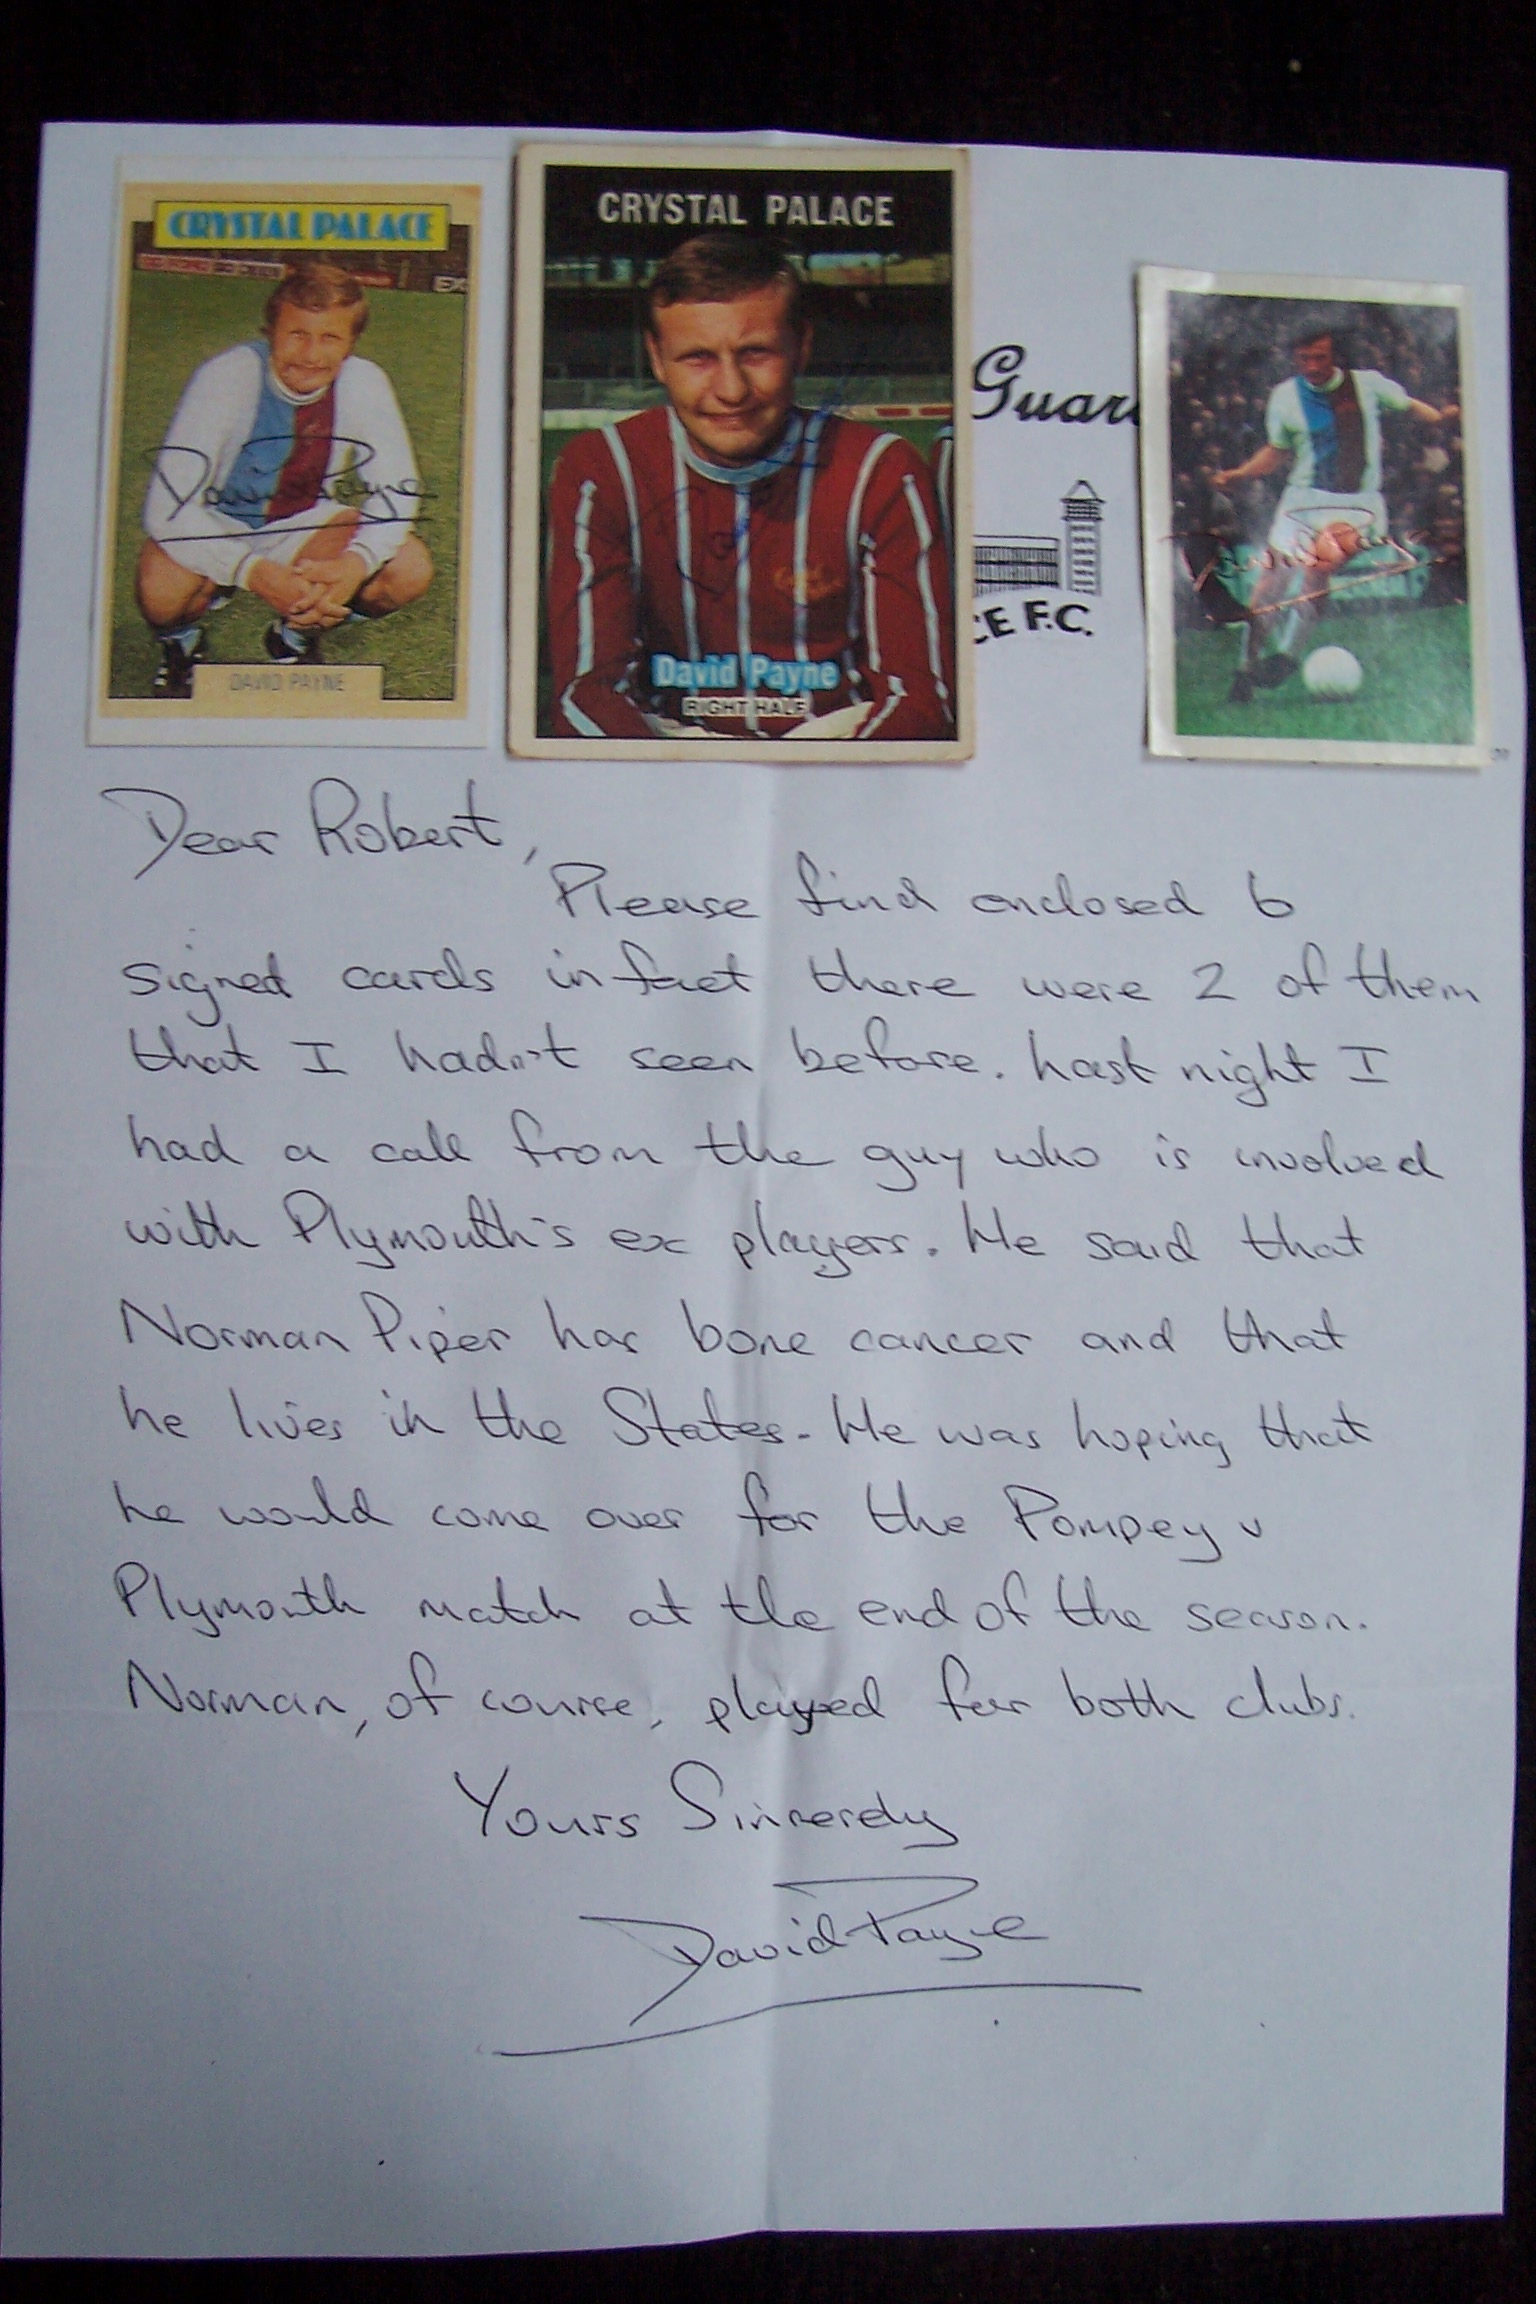 CRYSTAL PALACE
EX
David Payne
DAVID PAYNE
CRYSTAL PALACE
David Payne
RIGHT HALF
Guar
CE F.C.
David Payne
Dear Robert,
Please find enclosed 6
signed cards in fact there were 2 of them
that I hadn't seen before. Last night I
had a call from the guy who is involved
with Plymouth's ex players. He said that
Norman Piper has bone cancer and that
he lives in the States. He was hoping that
he would come over for the Pompey v
Plymouth match at the end of the season.
Norman, of course, played for both clubs.
Yours Sincerely
David Payne